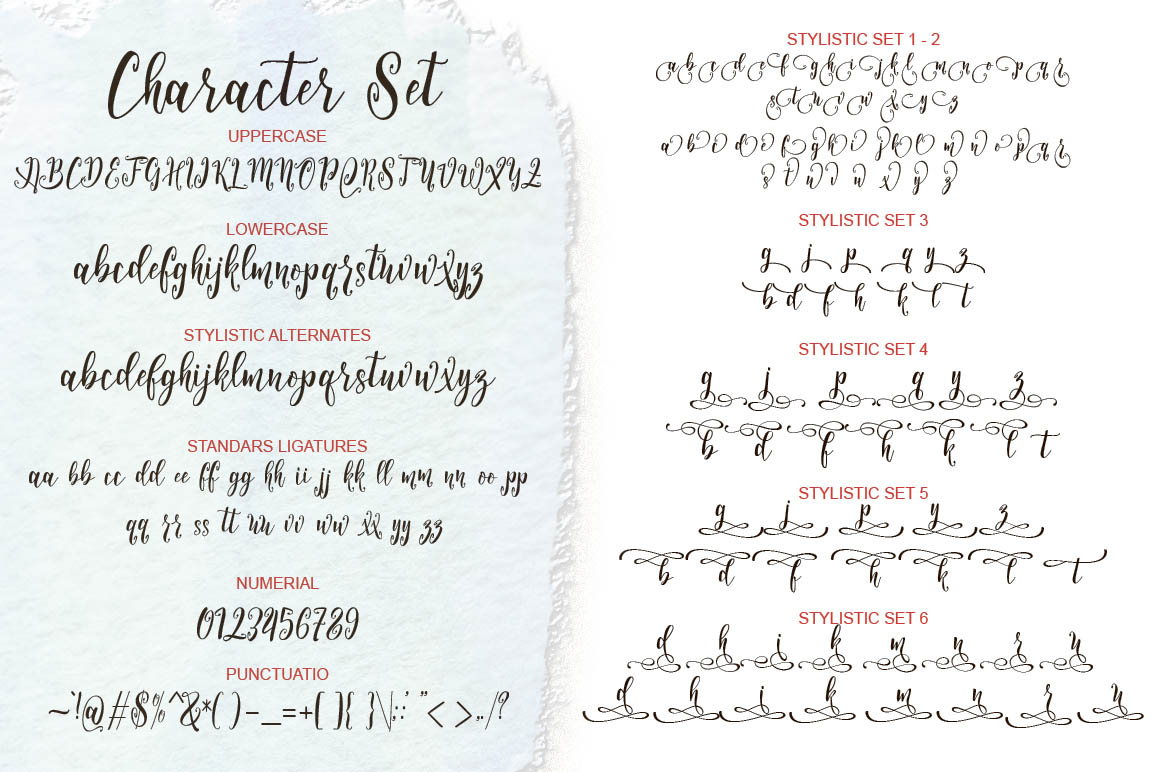 Character Set
UPPERCASE
ABCDEFGHIJKLMNOPQRSTUVWXYZ
LOWERCASE
abcdefghijklmnopqrstuvwxyz
STYLISTIC ALTERNATES
abcdefghijklmnopqrstuvwxyz
STANDARS LIGATURES
aa bb cc dd ee ff gg hh ii jj kk ll mm nn oo pp
qq rr ss tt uu vv ww xx yy zz
NUMERIAL
0123456789
PUNCTUATIO
~`!@#$%^&*( )-_=+[ ]{ }\|;:' "< >,./?
STYLISTIC SET 1 - 2
a b c d e f g h i j k l m n o p q r
s t u v w x y z
a b c d e f g h i j k l m n o p q r
s t u v w x y z
STYLISTIC SET 3
g j p q y z
b d f h k l t
STYLISTIC SET 4
g j p q y z
b d f h k l t
STYLISTIC SET 5
g j p y z
b d f h k l t
STYLISTIC SET 6
d h i k m n r u
d h i k m n r u